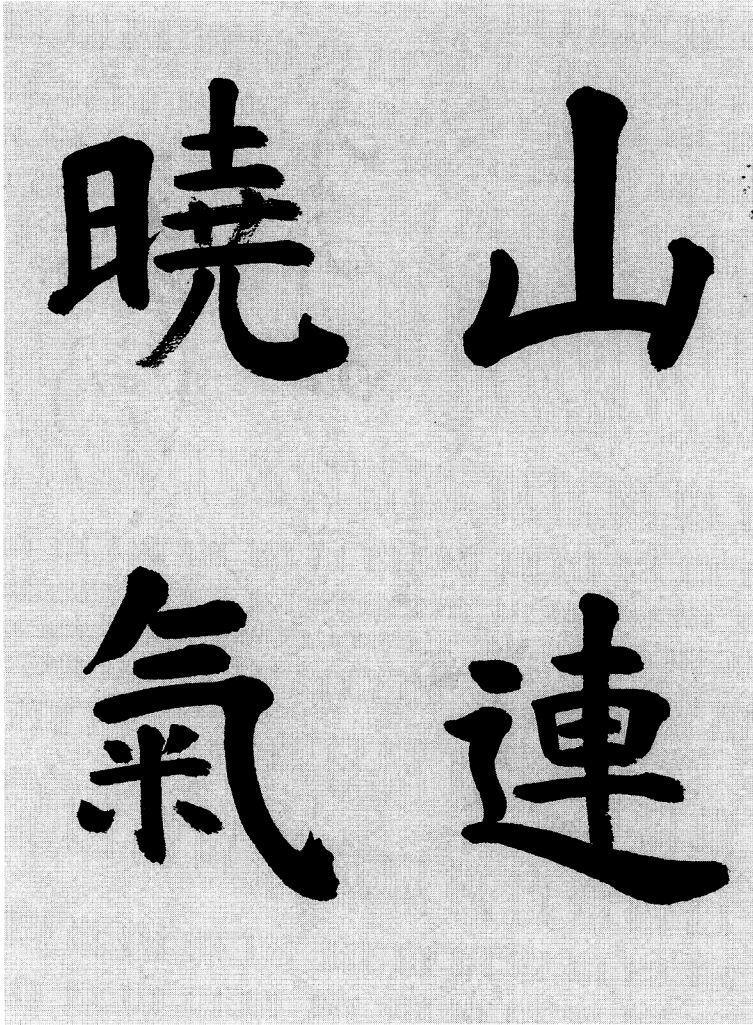 山連
曉氣